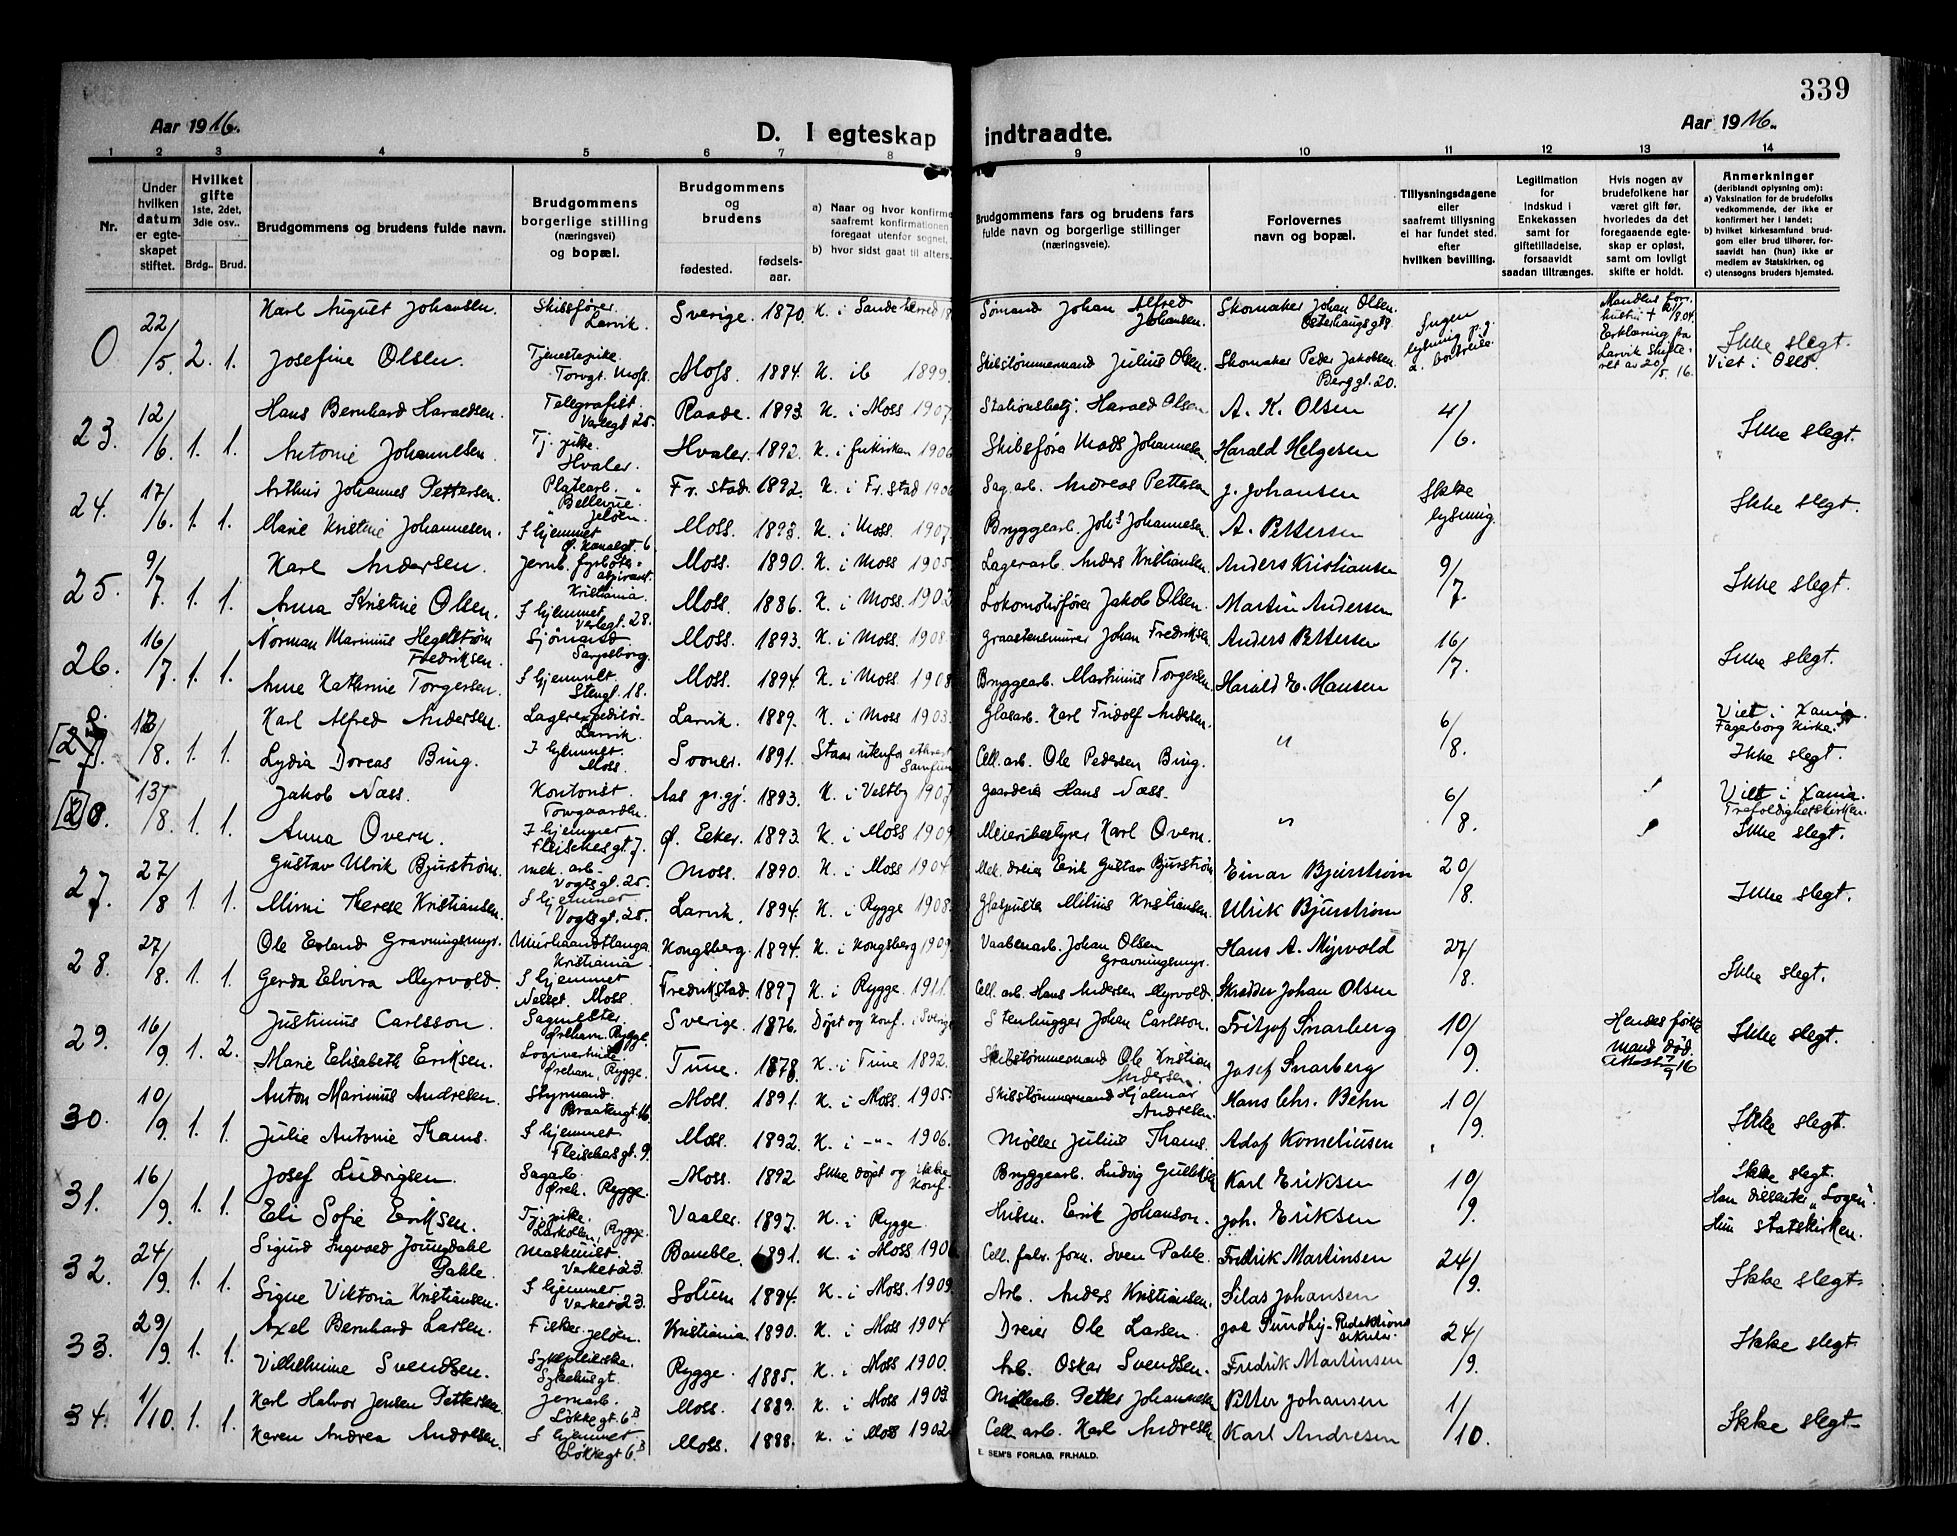 339
Aar 1916.
D. I egteskap indtraadte.
Aar 1916.
1 2 3 4 5 6 7 8 9 10 11 12 13 14
Nr.
Under hvilken datum er egteskapet stiftet.
Hvilket gifte 1ste, 2det, 3die osv..
Brdg.. Brud.
Brudgommens og brudens fulde navn.
Brudgommens borgerlige stilling (næringsvei) og bopæl.
Brudgommens og brudens
fødested.
fødselsaar.
a) Naar og hvor konfirme
saafremt konfirmationen
foregaat utenfor segnet,
b) hvor sidst gaat til alters.
Brudgommens fars og brudens fars
fulde navn og borgerlige stillinger
(næringsveie).
Forlovernes
navn og bopæl.
Tillysningsdagene
eller
saafremt tillysning
ei har fundet sted,
efter
hvilken bevilling.
Legitimation
for
indskud i
Enkekassen
samt for
giftetilladelse,
forsaavidt
saadan tiltrænges.
Hvis nogen av
brudefolkene har
været gift før,
hvorledes da det
foregaaende egte-
skap er opløst,
samt om lovligt
skifte er holdt.
Anmerkninger
(deriblandt oplysning om):
a) Vaksination for de brudefolks
vedkommende, der ikke er
konfirmert her i landet;
b) hvilket kirkesamfund brud-
gom eller brud tilhører, for-
saavidt han (hun) ikke er
medlem av Statskirken, og
c) utensogns bruders hjemsted.
0 22/5 2. 1.
Karl August Johansen. Skibsfører. Larvik. Sverige. 1870. K. i Sandeherred 18 Sømand Johan Alfred Johansen. Skomaker Johan Olsen. Østerhaugsgt 8 Ingen lysning
Josefine Olsen. Tjenestepike. Torvgt. Moss. Moss. 1884. K. ib 1899. Skibstømmermand Julius Olsen. Skomaker Peder Jakobsen Berggt. 20. Erklæring fra Larvik Skifteret av 20/5 16. Ikke slegt. Viet i Oslo.
23. 12/6 1. 1.
Hans Bernhard Haraldsen. Telegrafist. Varlegt 25. Raade. 1893. K. i Moss 1907. Stationsbetj. Harald Olsen A. K. Olsen 4/6. Ikke slegt.
Antonie Johannesen. Tj. pike. Hvaler. Hvaler. 1892. K. i frikirken 1906 Skibsfører Mads Johannesen. Harald Helgesen
24. 17/6. 1. 1.
Arthur Johannes Pettersen. Platearb. Bellevue. Jeløen. Fr. stad. 1892. K. i Fr. stad 1906 Sag. arb. Andreas Pettersen J. Johansen Ikke lysning. Ikke slegt.
Marie Kristine Johannesen. I hjemmet Ø. Kanalgt. 6 Moss. 1893. K. i Moss. 1907. Bryggearb. Johs Johannesen. A. Pettersen
25. 9/7. 1. 1.
Karl Andersen. Jernb. fyrbøter-aspirant. Kristiania. Moss. 1890. K. i Moss 1905. Lagerarb. Anders Kristiansen. Anders Kristiansen 9/7. Ikke slegt.
Anna Kristine Olsen. I hjemmet Varlegt. 28. Moss. 1886. K. i Moss. 1902 Lokomotivfører Jakob Olsen. Martin Andersen
26. 16/7. 1. 1.
Norman Marinius Hegelstrøm Fredriksen. Sjømand Sarpsborg. Moss. 1893. K. i Moss. 1908 Graastensmurer Johan Fredriksen Anders Pettersen 16/7. Ikke slegt.
Anne Kathrine Torgersen. I hjemmet Stengt. 18. Moss. 1894. K. i Moss 1908 Bryggearb. Martinius Torgersen Harald E. Hansen
[27] 12/8. 1. 1.
Karl Alfred Andersen. Lagerexpeditør. Larvik. Larvik. 1889. K. i Moss 1903. Glasarb. Karl Fridolf Andersen. 6/8. Viet i Xania. Fagerborg Kirke.
Lydia Doreas Bing. I hjemmet. Moss. Soon. 1891. Staar utenfor ethvert Samfund Cell. arb. Ole Pedersen Bing. " Ikke slegt.
[28]. 13/8. 1. 1.
Jakob Næss. Kontorist. Torvgaarden. Aas pr.gj. 1893. K. i Vestby 1907 Gaardeier Hans Næss. 6/8. Viet i Xania. Trefoldighetskirken.
Anna Overn. I hjemmet Fleischesgt 7. Ø. Eeker. 1893. K. i Moss 1909. Meieribestyrer Karl Overn. " Ikke slegt.
27. 27/8 1. 1.
Gustav Ulrik Bjurstrøm. mek. arb. Vogtsgt. 25. Moss. 1890. K. i Moss 1904 Mek. dreier Erik Gustav Bjurstrøm Einar Bjurstrøm 20/8. Ikke slegt.
Mimi Therese Kristiansen. I hjemmet Vogtsgt. 25. Larvik. 1894. K. i Rygge 1908. Glaspuster Milius Kristiansen. Ulrik Bjurstrøm
28. 27/8. 1. 1.
Ole Erland Gravningsmyr. Murhaandtlanger Kristiania. Kongsberg. 1894. K. i Kongsberg 1909 Vaabenarb. Johan Olsen Gravningsmyr. Hans A. Myrvold 27/8. Ikke slegt.
Gerda Elvira Myrvold. I hjemmet Nesset. Moss. Fredrikstad. 1897 K. i Rygge 1911. Cell. arb. Hans Andersen Myrvold Skredder Johan Olsen
29. 16/9 1. 2.
Justinius Carlsson. Sagmester Ørehavn. Rygge. Sverige. 1876. Døpt og konf. i Sverige Stenhugger Johan Carlsson. Fritjof Snarberg 10/9. Hendes første mand død. Attest 7/9 16 Ikke slegt.
Marie Elisabeth Eriksen. Logivertinde. Ørehavn, Rygge. Tune. 1878. K. i Tune 1892. Skibstømmermand Ole Kristian Andersen. Josef Snarberg
30. 10/9. 1. 1.
Anton Marinius Andresen. Styrmand. Braatengt 16. Moss. 1891. K. i Moss. 1905. Skibstømmermand Hjalmar Andresen. Hans Chr. Behn 10/9. Ikke slegt.
Julie Antonie Thams. I hjemmet Fleischesgt. 9. Moss. 1892. K. i -"- 1906. Møller Julius Thams. Adof Korneliussen
31. 16/9. 1. 1.
Josef Ludvigsen. Sagarb. Øreh. Rygge. Moss. 1892 Ikke døpt og ikke konf. Bryggearb. Ludvig Gulliksen Karl Eriksen 10/9. Ikke slegt. Han dissenter "Logen".
Eli Sofie Eriksen. Tj. pike. Larkollen, Rygge. Vaaler. 1897. K. i Rygge. Husm. Erik Johanson. Joh. Eriksen Hun statskirken.
32. 24/9. 1. 1.
Sigurd Ingvald Jonesdahl Pahle. Maskinist. Værket 23. Bamble. 1891. K. i Moss 190 Cell. fabr. form. Sven Pahle. Fredrik Martinsen 24/9. Ikke slegt.
Signe Viktoria Kristiansen. I hjemmet. Værket 23. Solum 1894. K. i Moss. 1909. Arb. Anders Kristiansen. Silas Johansen
33. 29/9. 1. 1.
Axel Bernhard Larsen. Fisker. Jeløen. Kristiania. 1890. K. i Moss 1904 Dreier Ole Larsen. Joh Sundby. Redaktionssekretær 24/9. Ikke slegt
Vilhelmine Svendsen. Sykepleierske. Sykehusgt. Rygge. 1885. K. i Moss 1900. Arb. Oskar Svendsen. Fredrik Martinsen
34. 1/10. 1. 1.
Karl Halvor Jensen Pettersen. Jernarb. Løkkegt. 6B Moss. 1889. K. i Moss 1903. Møllearb. Petter Johannesen Petter Johansen 1/10. Ikke slegt.
Karen Andrea Andresen. I hjemmet Løkkegt 6B Moss. 1888. K. i Moss 1902. Cell. arb. Karl Andresen Karl Andresen
E. SEM'S FORLAG, FR.HALD.